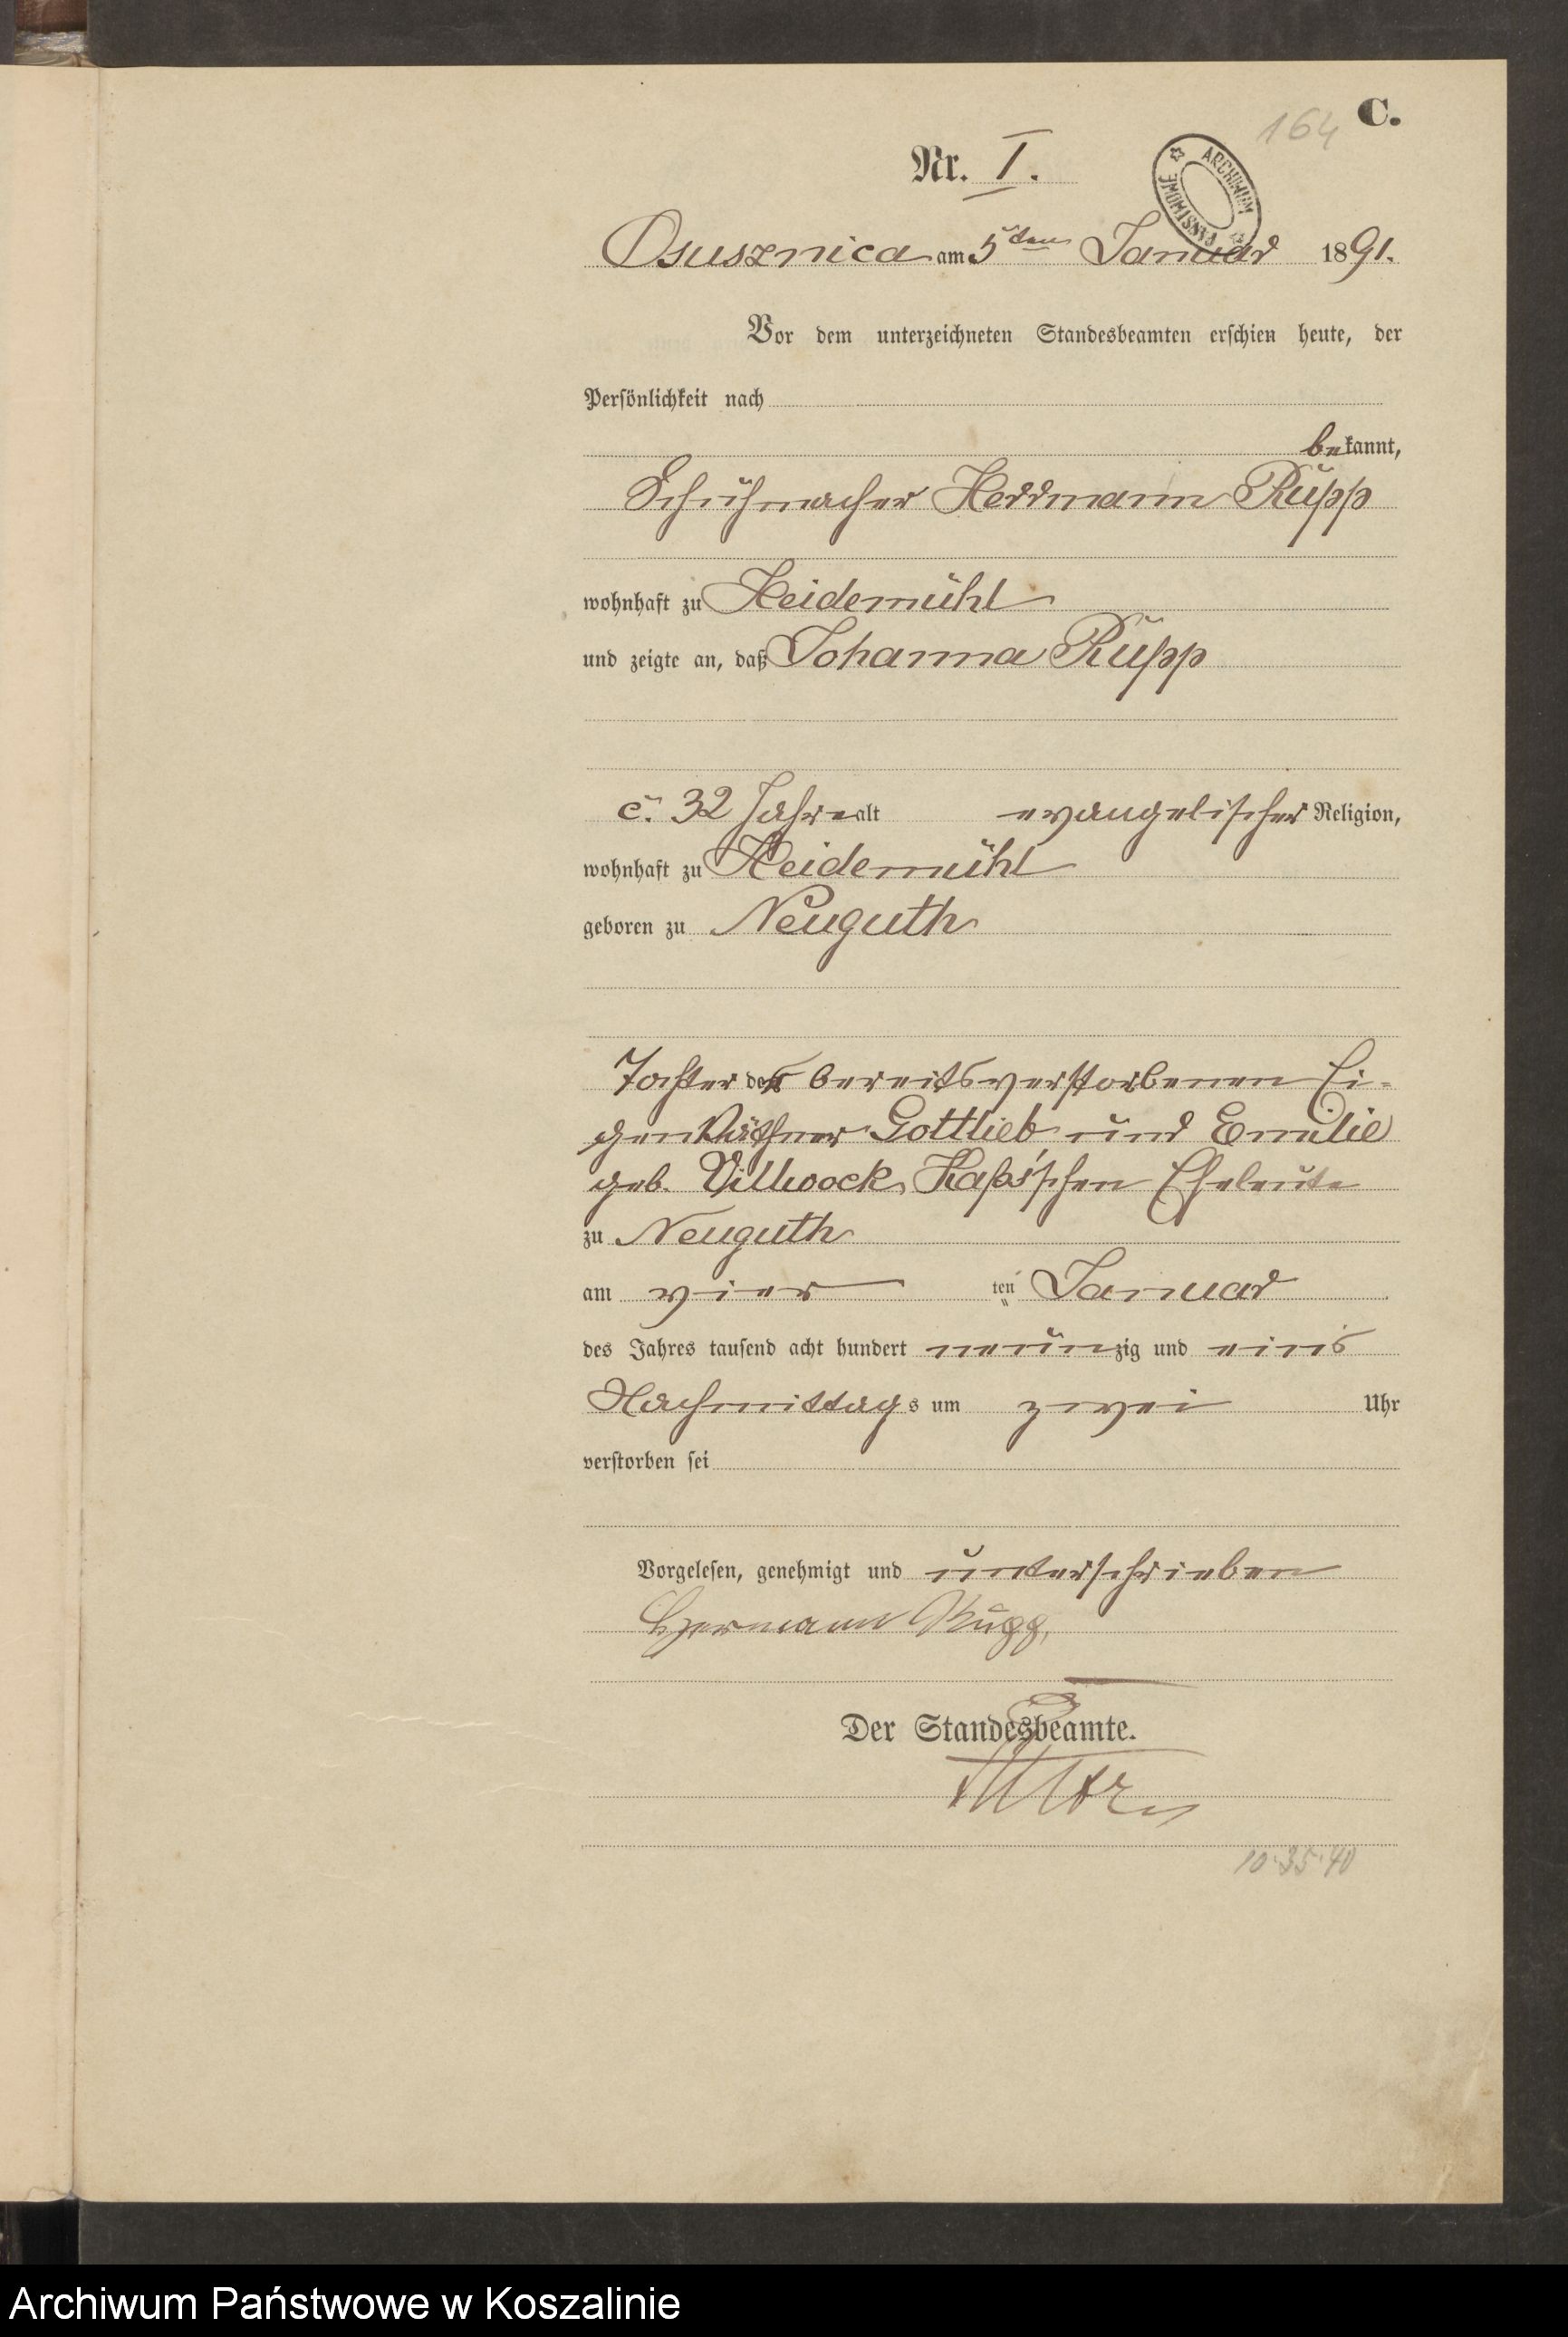 164 C.
Nr. I.
ARCHIWUM PAŃSTWOWE
Osusznica am 5ten Januar 1891.
Vor dem unterzeichneten Standesbeamten erschien heute, der
Persönlichkeit nach
bekannt,
Schuhmacher Herrmann Rupp
wohnhaft zu Heidemühl
und zeigte an, daß Johanna Rupp
c. 32 Jahre alt evangelischer Religion,
wohnhaft zu Heidemühl
geboren zu Neuguth
Tochter der bereits verstorbenen Ei-
genkäthner Gottlieb und Emilie
geb. Villwock, Kaß'schen Eheleute
zu Neuguth
am vier ten Januar
des Jahres tausend acht hundert neunzig und eins
Nachmittags um zwei Uhr
verstorben sei
Vorgelesen, genehmigt und unterschrieben
Hermann Rupp,
Der Standesbeamte.
10.35.40
Archiwum Państwowe w Koszalinie